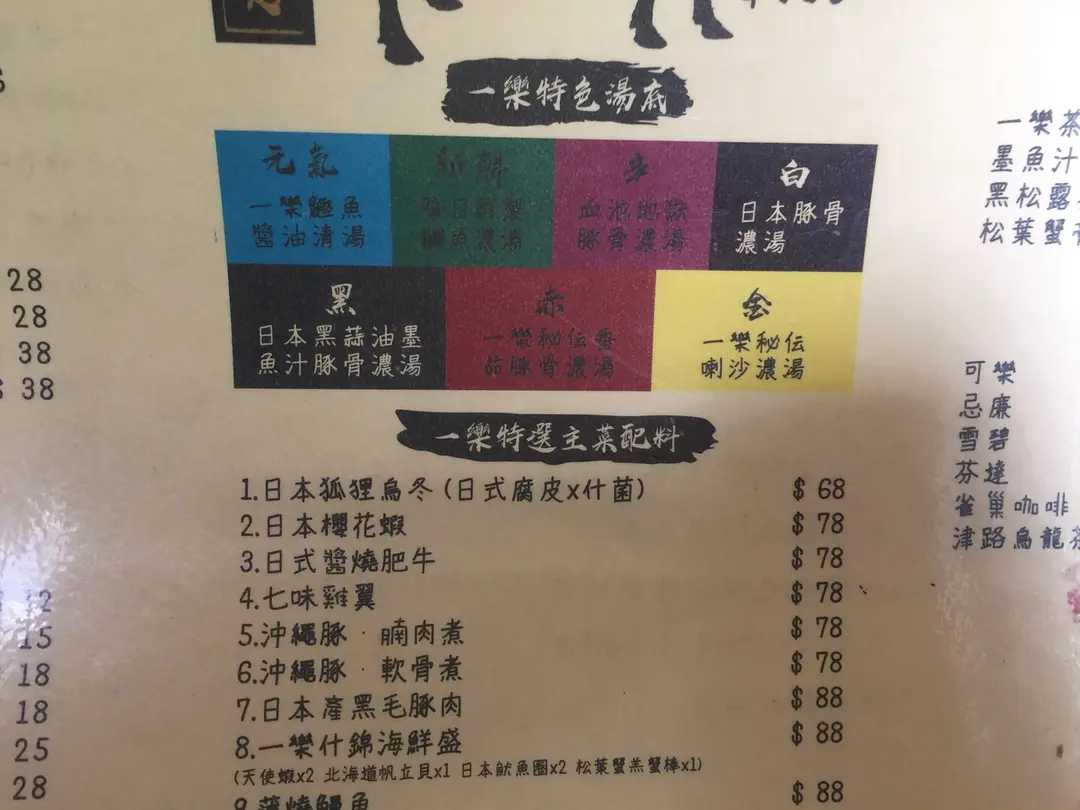 一樂特色湯底
元氣
一樂鱲魚
醬油清湯
白
日本豚骨
濃湯
黑
日本黑蒜油墨
魚汁豚骨濃湯
赤
一樂秘伝番
茄豚骨濃湯
金
一樂秘伝
喇沙濃湯
血池地獄
豚骨濃湯
鯛魚濃湯
一樂特選主菜配料
1.日本狐狸烏冬(日式腐皮x什菌) $ 68
2.日本櫻花蝦 $ 78
3.日式醬燒肥牛 $ 78
4.七味雞翼 $ 78
5.沖繩豚‧腩肉煮 $ 78
6.沖繩豚‧軟骨煮 $ 78
7.日本產黑毛豚肉 $ 88
8.一樂什錦海鮮盛 $ 88
(天使蝦x2 北海道帆立貝x1 日本魷魚圈x2 松葉蟹羔蟹棒x1)
9.蒲燒鰻魚 $ 88
28
28
38
38
12
15
18
18
25
28
一樂茶
墨魚汁
黑松露
松葉蟹
可樂
忌廉
雪碧
芬達
雀巢咖啡
津路烏龍茶